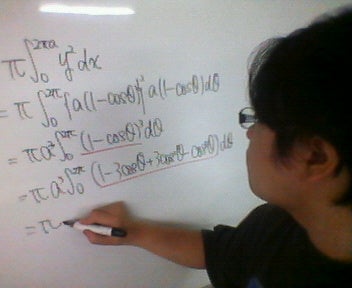 π∫₀^{2πa} y² dx
= π∫₀^{2π} {a(1-cosθ)}² a(1-cosθ)dθ
= πa³∫₀^{2π} (1-cosθ)³dθ
= πa³∫₀^{2π} (1-3cosθ+3cos²θ-cos³θ)dθ
= π